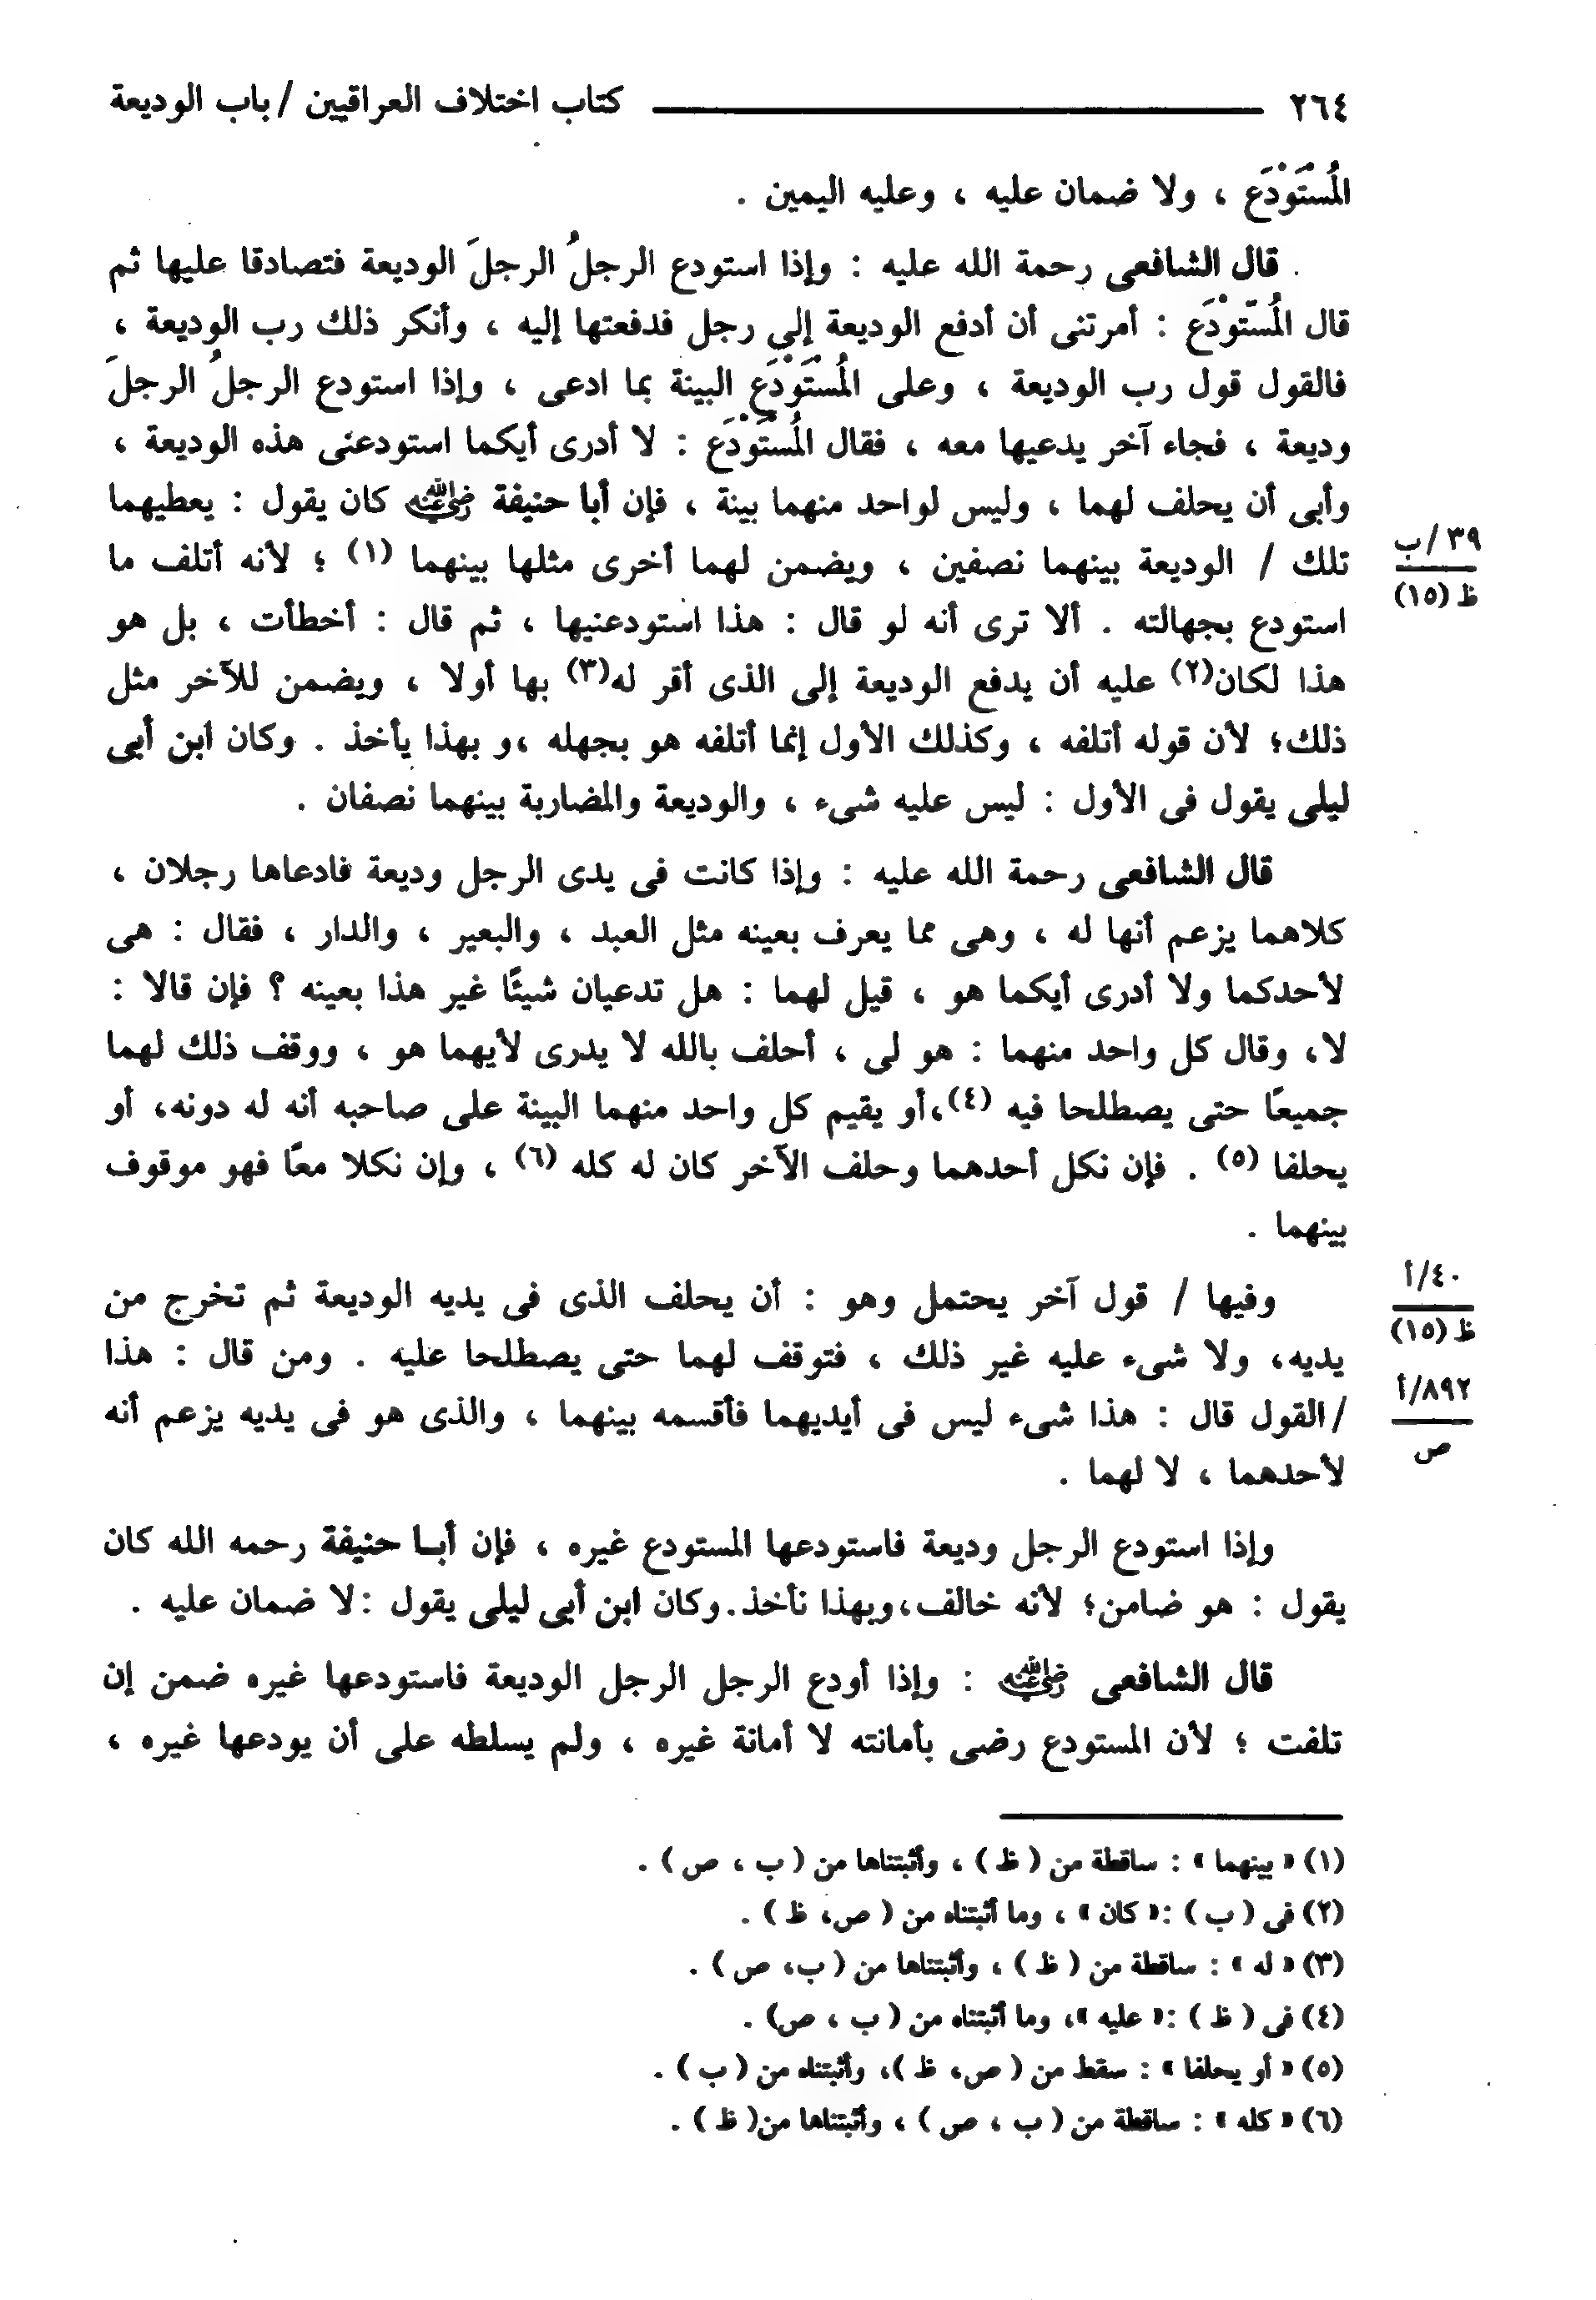 ٢٦٤ كتاب اختلاف العراقيين / باب الوديعة
المُسْتَوْدَع ، ولا ضمان عليه ، وعليه اليمين .
قال الشافعى رحمة الله عليه : وإذا استودع الرجلُ الرجلَ الوديعة فتصادقا عليها ثم
قال المُسْتَوْدَع : أمرتنى أن أدفع الوديعة إلى رجل فدفعتها إليه ، وأنكر ذلك رب الوديعة ،
فالقول قول رب الوديعة ، وعلى المُسْتَوْدَع البينة بما ادعى ، وإذا استودع الرجلُ الرجلَ
وديعة ، فجاء آخر يدعيها معه ، فقال المُسْتَوْدَع : لا أدرى أيكما استودعنى هذه الوديعة ،
وأبى أن يحلف لهما ، وليس لواحد منهما بينة ، فإن أبا حنيفة رضي الله عنه كان يقول : يعطيهما
تلك / الوديعة بينهما نصفين ، ويضمن لهما أخرى مثلها بينهما (١) ؛ لأنه أتلف ما
٣٩/ب
ظ (١٥)
استودع بجهالته . ألا ترى أنه لو قال : هذا استودعنيها ، ثم قال : أخطأت ، بل هو
هذا لكان(٢) عليه أن يدفع الوديعة إلى الذى أقر له(٣) بها أولا ، ويضمن للآخر مثل
ذلك؛ لأن قوله أتلفه ، وكذلك الأول إنما أتلفه هو بجهله ،و بهذا يأخذ . وكان ابن أبى
ليلى يقول فى الأول : ليس عليه شىء ، والوديعة والمضاربة بينهما نصفان .
قال الشافعى رحمة الله عليه : وإذا كانت فى يدى الرجل وديعة فادعاها رجلان ،
كلاهما يزعم أنها له ، وهى مما يعرف بعينه مثل العبد ، والبعير ، والدار ، فقال : هى
لأحدكما ولا أدرى أيكما هو ، قيل لهما : هل تدعيان شيئًا غير هذا بعينه ؟ فإن قالا :
لا، وقال كل واحد منهما : هو لى ، أحلف بالله لا يدرى لأيهما هو ، ووقف ذلك لهما
جميعًا حتى يصطلحا فيه (٤)،أو يقيم كل واحد منهما البينة على صاحبه أنه له دونه، أو
يحلفا (٥) . فإن نكل أحدهما وحلف الآخر كان له كله (٦) ، وإن نكلا معًا فهو موقوف
بينهما .
وفيها / قول آخر يحتمل وهو : أن يحلف الذى فى يديه الوديعة ثم تخرج من
٤٠/أ
ظ (١٥)
يديه، ولا شىء عليه غير ذلك ، فتوقف لهما حتى يصطلحا عليه . ومن قال : هذا
/القول قال : هذا شىء ليس فى أيديهما فأقسمه بينهما ، والذى هو فى يديه يزعم أنه
٨٩٢/أ
ص
لأحدهما ، لا لهما .
وإذا استودع الرجل وديعة فاستودعها المستودع غيره ، فإن أبـا حنيفة رحمه الله كان
يقول : هو ضامن؛ لأنه خالف،وبهذا نأخذ.وكان ابن أبى ليلى يقول :لا ضمان عليه .
قال الشافعى رضي الله عنه : وإذا أودع الرجل الرجل الوديعة فاستودعها غيره ضمن إن
تلفت ؛ لأن المستودع رضى بأمانته لا أمانة غيره ، ولم يسلطه على أن يودعها غيره ،
(١) « بينهما » : ساقطة من ( ظ ) ، وأثبتناها من ( ب ، ص ) .
(٢) فى ( ب ) :« كان » ، وما أثبتناه من ( ص، ظ ) .
(٣) « له » : ساقطة من ( ظ ) ، وأثبتناها من ( ب، ص ) .
(٤) فى ( ظ ) :« عليه »، وما أثبتناه من ( ب ، ص) .
(٥) « أو يحلفا » : سقط من ( ص، ظ )، وأثبتناه من ( ب ) .
(٦) « كله » : ساقطة من ( ب ، ص ) ، وأثبتناها من( ظ ) .